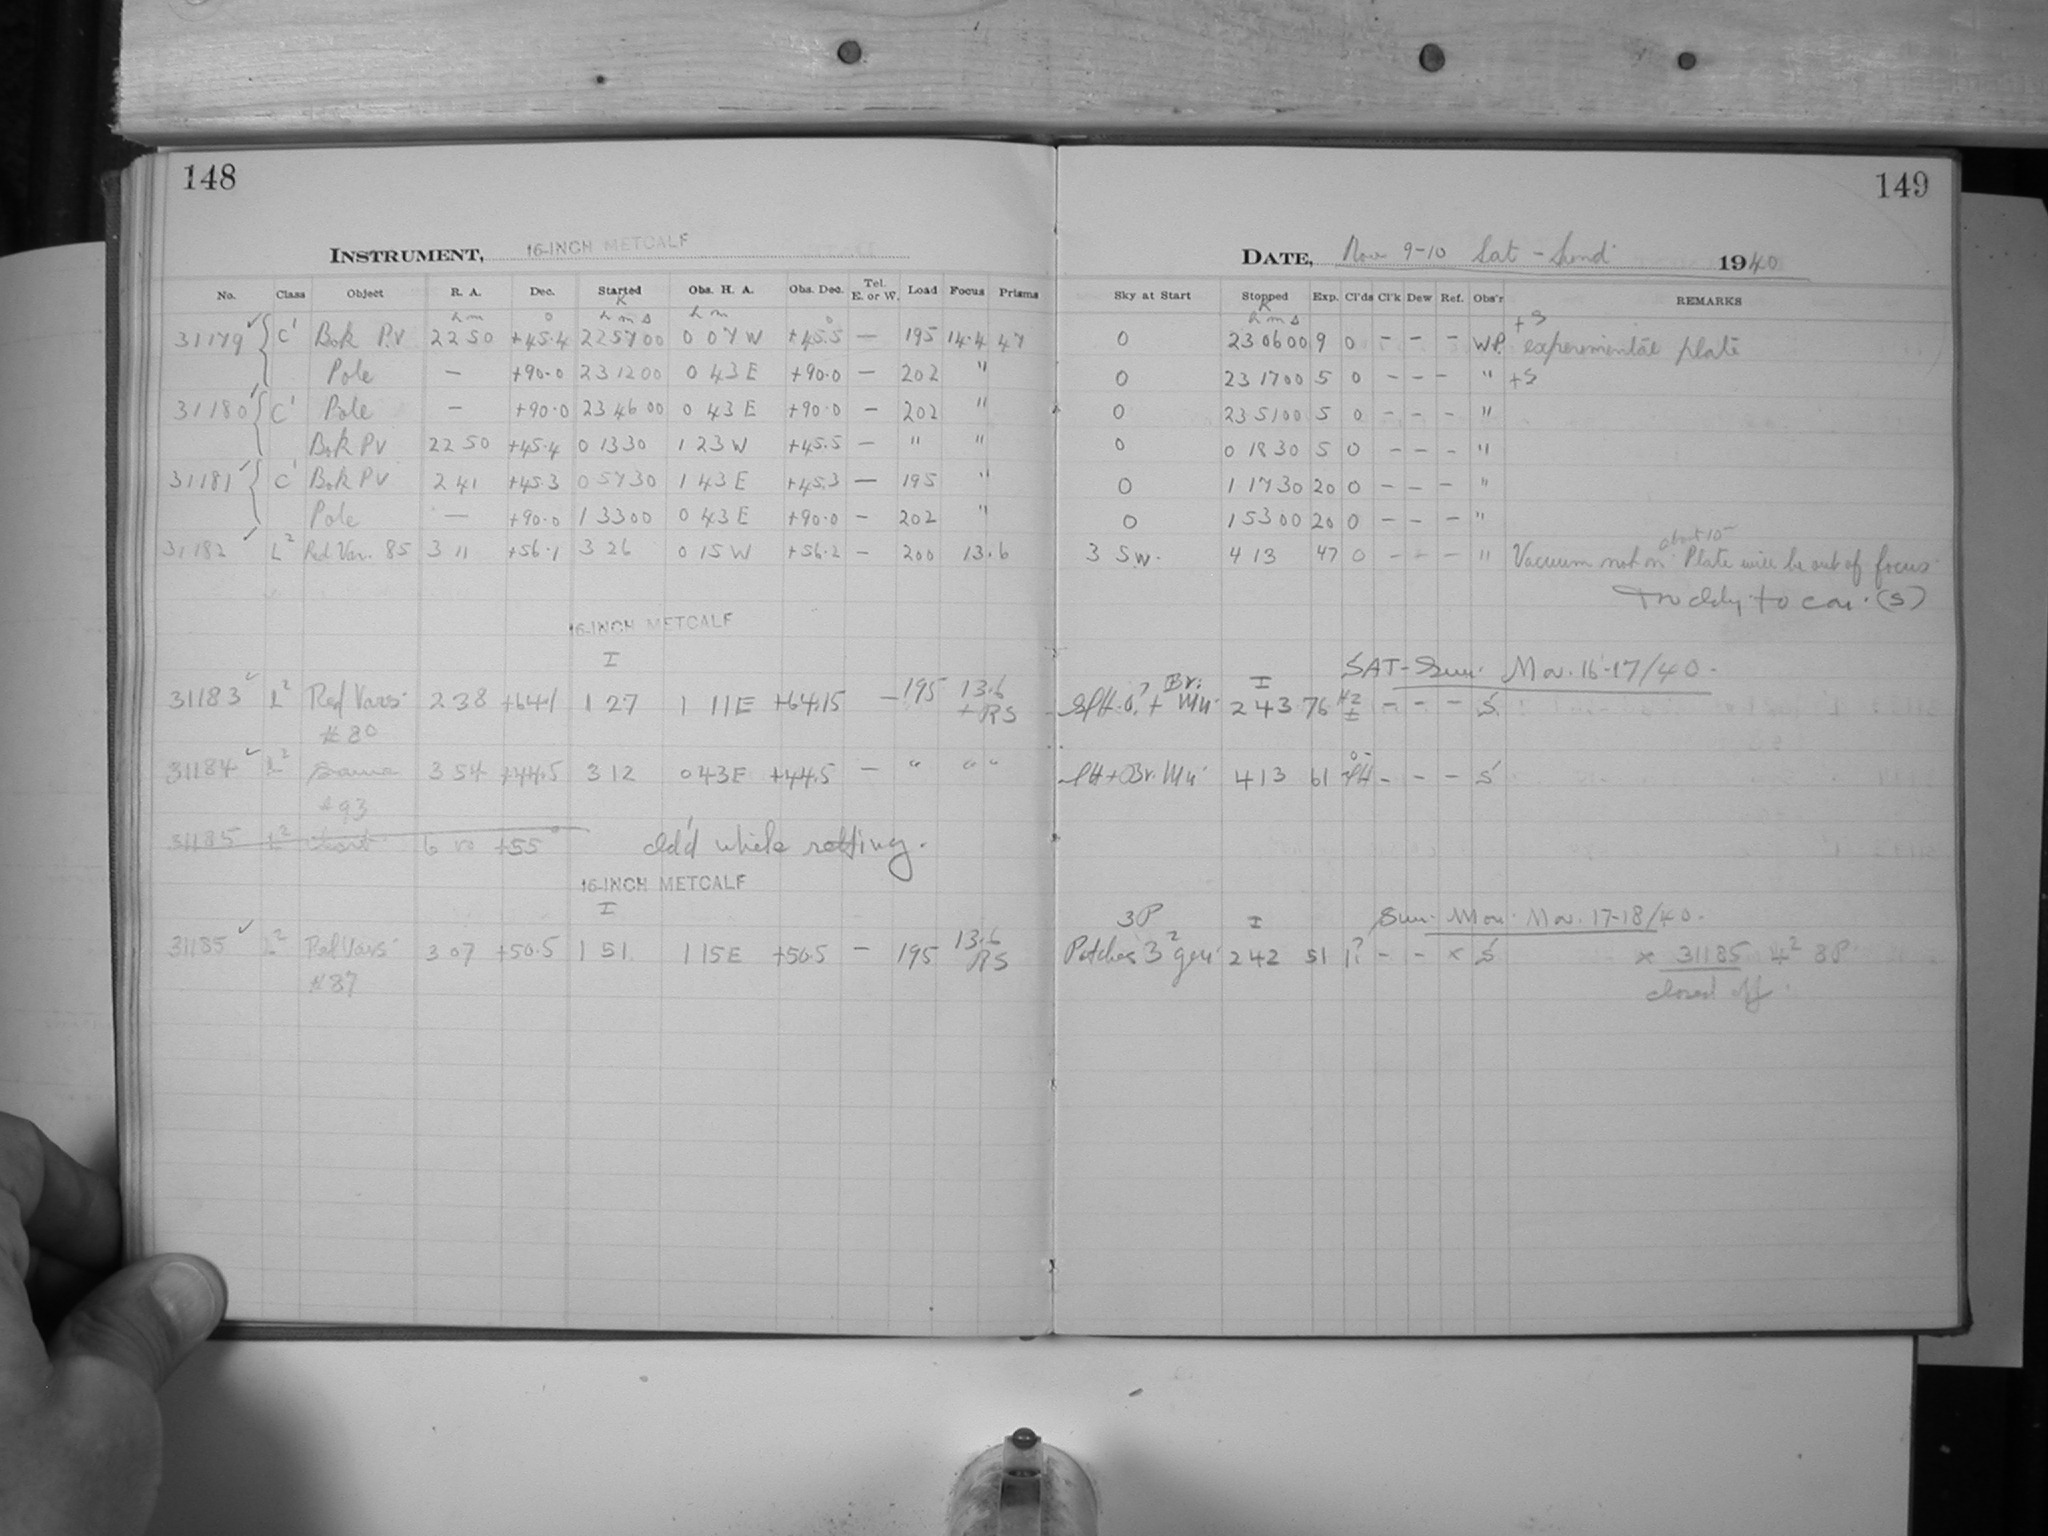 148
149
INSTRUMENT, 16-INCH METCALF
DATE, Nov 9-10 Sat - Sund 1940
No. Class Object R. A. Dec. Started Obs. H. A. Obs. Dec. Tel. E. or W. Load Focus Prisms Sky at Start Stopped Exp. Cl'ds Cl'k Dew Ref. Obs'r REMARKS
h m o K h m s h m o K h m s
31179 C' Bok P.V 22 50 +45.4 22 57 00 0 07 W +45.5 — 195 14.4 47 0 23 06 00 9 0 - - - W.P. +S experimental plate
Pole — +90.0 23 12 00 0 43 E +90.0 — 202 " 0 23 17 00 5 0 - - - " +S
31180 C' Pole — +90.0 23 46 00 0 43 E +90.0 — 202 " 0 23 51 00 5 0 - - - "
Bok PV 22 50 +45.4 0 13 30 1 23 W +45.5 — " " 0 0 18 30 5 0 - - - "
31181 C' Bok PV 2 41 +45.3 0 57 30 1 43 E +45.3 — 195 " 0 1 17 30 20 0 - - - "
Pole — +90.0 1 33 00 0 43 E +90.0 — 202 " 0 1 53 00 20 0 - - - "
31182 L2 Red Var. 85 3 11 +56.1 3 26 0 15 W +56.2 - 200 13.6 3 S.W. 4 13 47 0 - - - " Vacuum not on about 10 Plate will be out of focus
(S)
16-INCH METCALF
I
SAT-Sun. Nov. 16-17/40.
31183 L2 Red Vars. 2 38 +64.1 1 27 1 11 E +64.15 — 195 13.6 + RS Br. I 2 43 76 - - - S
#80
31184 L2 Same 3 54 +44.5 3 12 0 43 E +44.5 — " " " 4 13 61 - - - S
#93
31185 L2 6 10 +55° cl'd while setting.
16-INCH METCALF
I
3P I Sun. Mon. Nov. 17-18/40.
31185 L2 Red Vars. 3 07 +50.5 1 51 1 15 E +50.5 — 195 13.6 RS Patches 2 42 51 1? - - x S x 31185 8P
#87
closed off